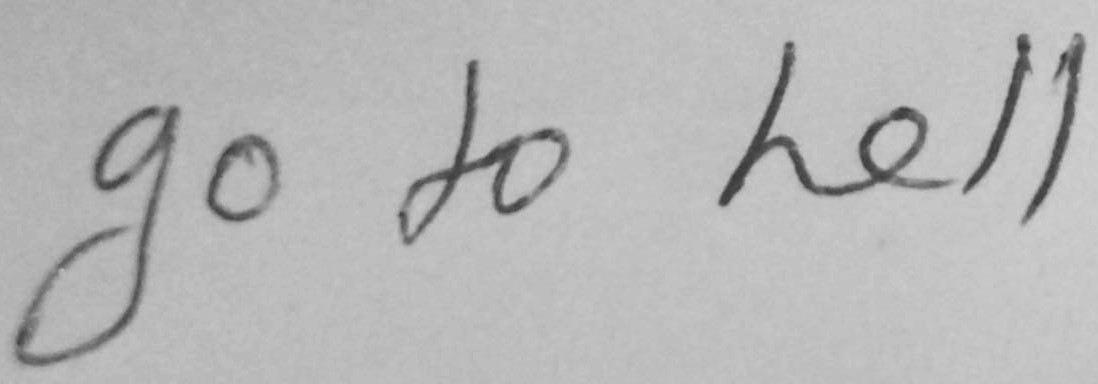 go to hell